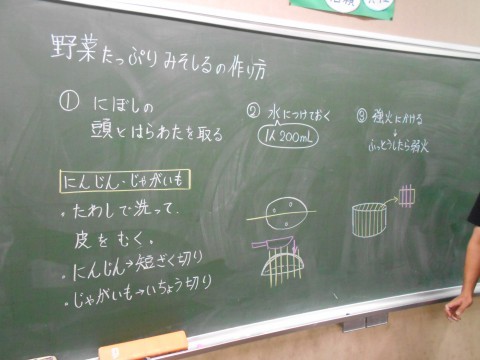 野菜たっぷりみそしるの作り方
① にぼしの
頭とはらわたを取る
② 水につけておく
1人200mL
③ 強火にかける
↓
ふっとうしたら弱火
にんじん・じゃがいも
・たわしで洗って、
皮をむく。
・にんじん→短ざく切り
・じゃがいも→いちょう切り